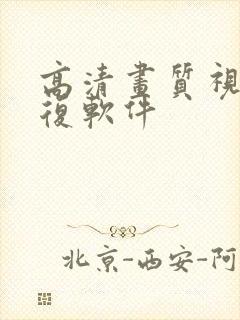 高清畫質視
復軟件
北京-西安-阿